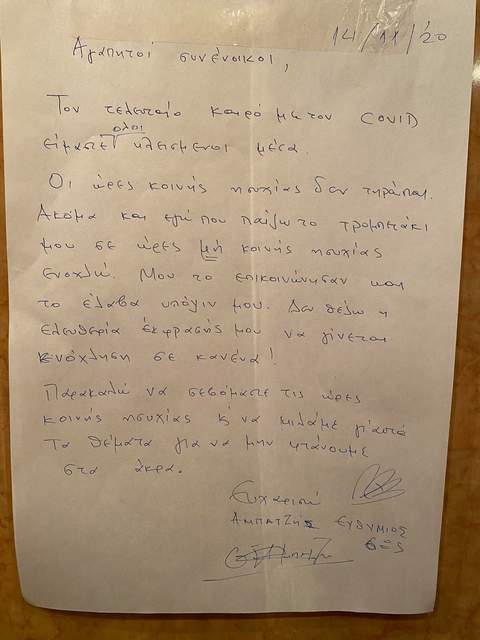 14/11/'20
Αγαπητοί συνένοικοι,
Τον τελευταίο καιρό με τον COVID
είμαστε όλοι κλεισμένοι μέσα.
Οι ώρες κοινής ησυχίας δεν τηρούνται.
Ακόμα και εγώ που παίζω το τρομπετάκι
μου σε ώρες μη κοινής ησυχίας
ενοχλώ. Μου το επικοινώνησαν και
το έλαβα υπόψιν μου. Δεν θέλω η
ελευθερία έκφρασής μου να γίνεται
ενόχληση σε κανένα!
Παρακαλώ να σεβόμαστε τις ώρες
κοινής ησυχίας κ' να μιλάμε γι'αυτά
τα θέματα για να μην φτάνουμε
στα άκρα.
Ευχαριστώ
Αμπατζής ΕΥΘΥΜΙΟΣ
6ος